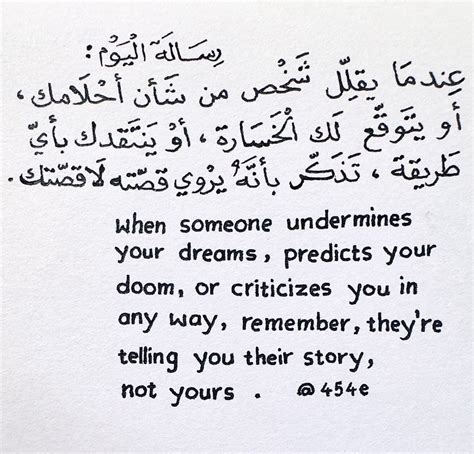 رِسَالَة الْيَوْم :
عِندمَا يقلِّل شَخْص من شَأن أحْلَامك ،
أو يتَوقَّع لَك الْخَسَارة ، أوْ يَنتَقدك بأيِّ
طَريقَة ، تَذكَّر بأنَّهُ يرْوي قصّته لَا قصّتك .
when someone undermines
your dreams, predicts your
doom, or criticizes you in
any way, remember, they're
telling you their story,
not yours . @454e